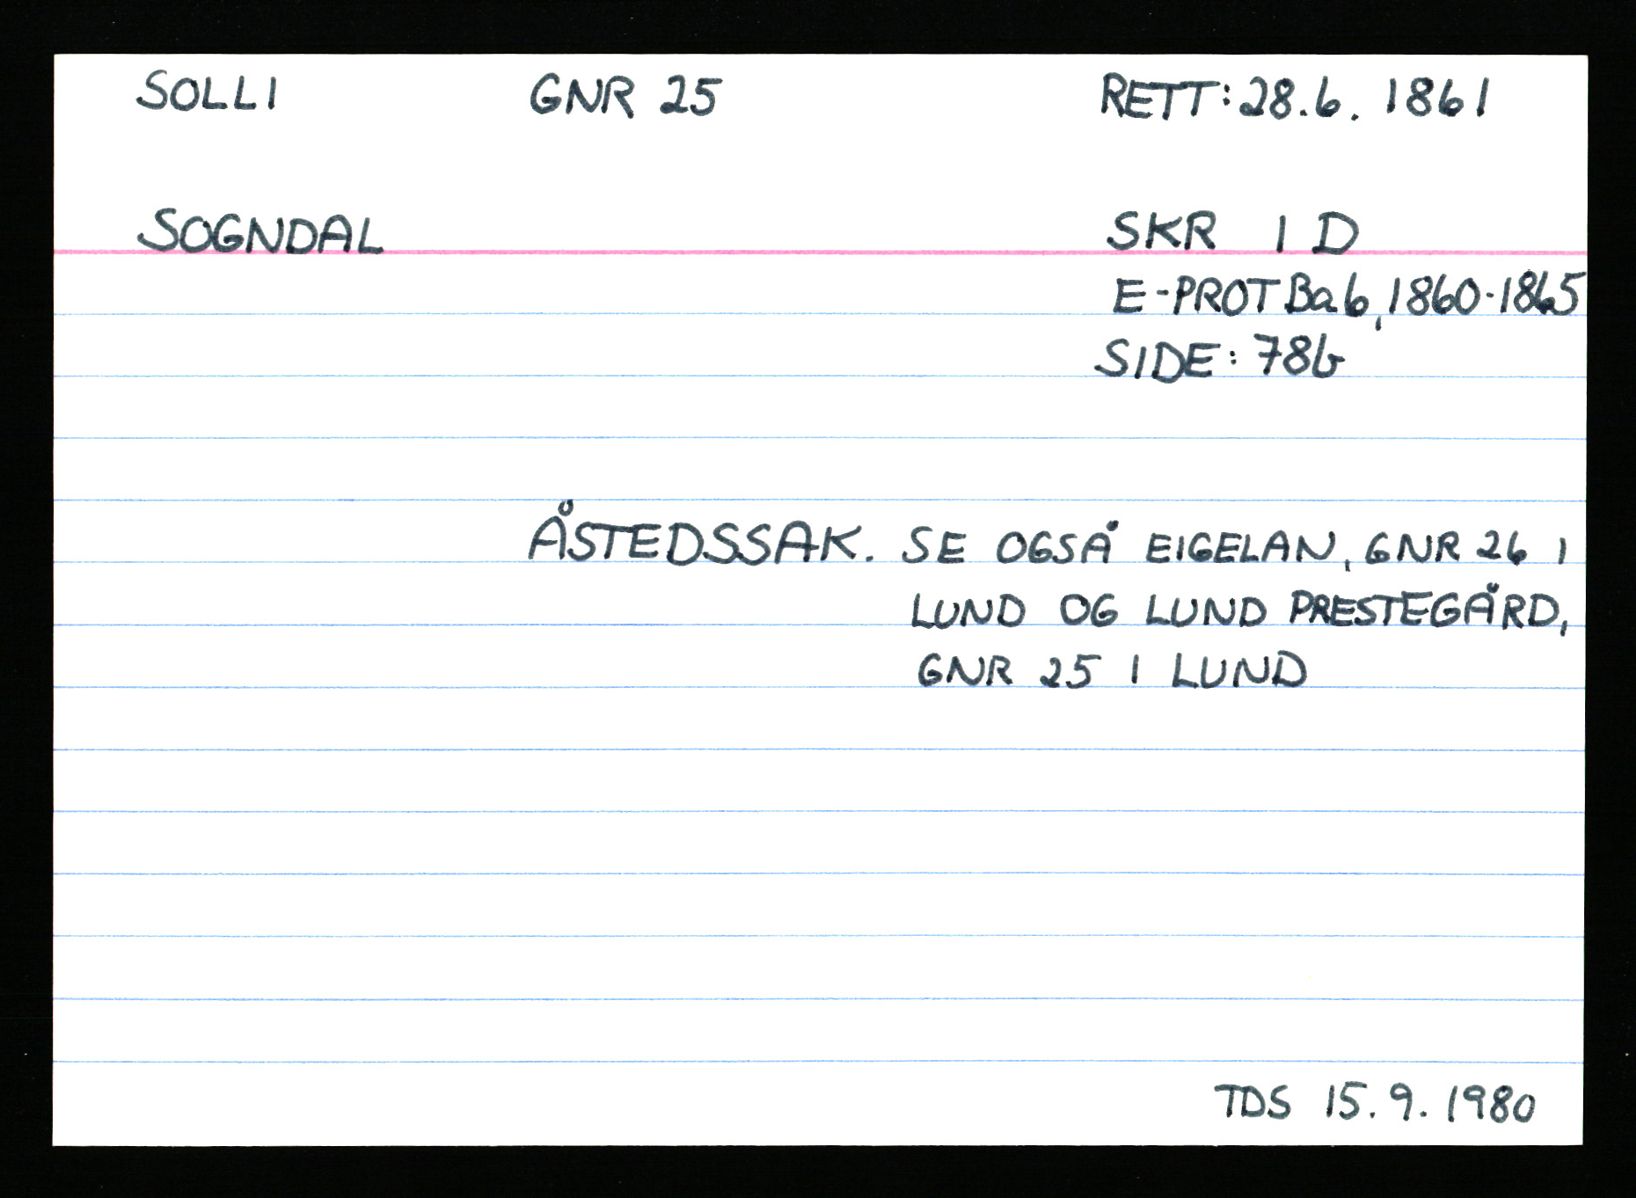 SOLLI GNR 25 RETT: 28.6. 1861
SOGNDAL SKR 1 D
E-PROT Ba6, 1860-1865
SIDE: 78b
ÅSTEDSSAK. SE OGSÅ EIGELAN, GNR 26 I
LUND OG LUND PRESTEGÅRD,
GNR 25 I LUND
TDS 15.9.1980